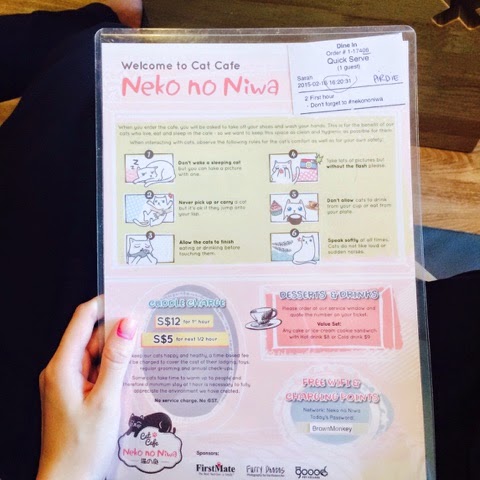 Welcome to Cat Cafe
Neko no Niwa
Dine In
Order # 1-17426
Quick Serve
(1 guest)
Sarah
2015-02-16 16:20:31
ARDIE
2 First hour
- Don't forget to #nekononiwa
When you enter the cafe, you will be asked to take off your shoes and wash your hands. This is for the benefit of our
cats who live, eat and sleep in the cafe - so we want to keep this space as clean and hygienic as possible for them.
When interacting with cats, observe the following rules for the cat's comfort as well as for your own safety:
Don't wake a sleeping cat
but you can take a picture
with one.
2
Never pick up or carry a cat
but it's ok if they jump onto
your lap.
3
Allow the cats to finish
eating or drinking before
touching them.
Take lots of pictures but
without the flash please.
5
Don't allow cats to drink
from your cup or eat from
your plate.
6
Speak softly at all times.
Cats do not like loud or
sudden noises.
CUDDLE CHARGE
S$12 for 1st hour
S$5 for next 1/2 hour
our cats happy and healthy, a time based fee
charged to cover the cost of their lodging, toys,
regular grooming and annual check ups.
Some cats take time to warm up to people and
therefore a minimum stay of 1 hour is necessary to fully
appreciate the environment we have created.
No service charge, No GST.
DESSERTS & DRINKS
Please order at our service window and
quote the number on your ticket.
Value Set:
Any cake or ice cream cookie sandwich
with Hot drink $8 or Cold drink $9
FREE WIFI &
CHARGING POINTS
Network: Neko no Niwa
Today's Password:
BrownMonkey
Cat
Cafe
Neko no Niwa
Sponsors:
FirstMate
Furry Photos